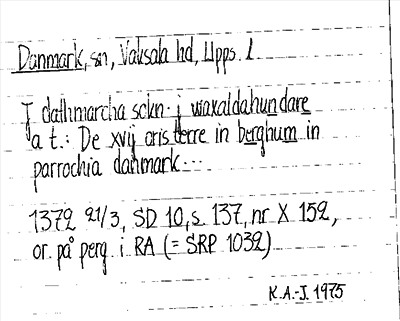 Danmark, sn, Vaksala hd, Upps. l.
J dathmarcha sckn j waxaldahundare
a t.: De xvij oris terre in berghum in
parrochia danmark...
1372 21/3, SD 10, s. 137, nr X 152,
or. på perg. i RA (= SRP 1032)
K.A.-J. 1975